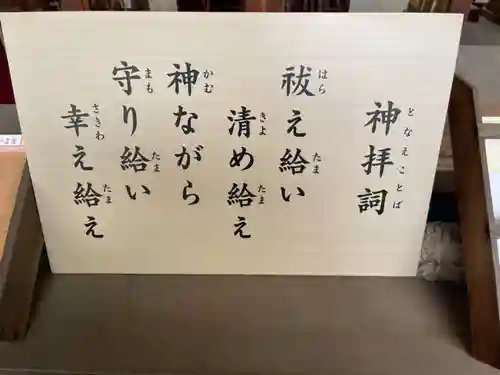 神拝詞
となえことば
祓え給い
はら たま
清め給え
きよ たま
神ながら
かむ
守り給い
まも たま
幸え給え
さきわ たま